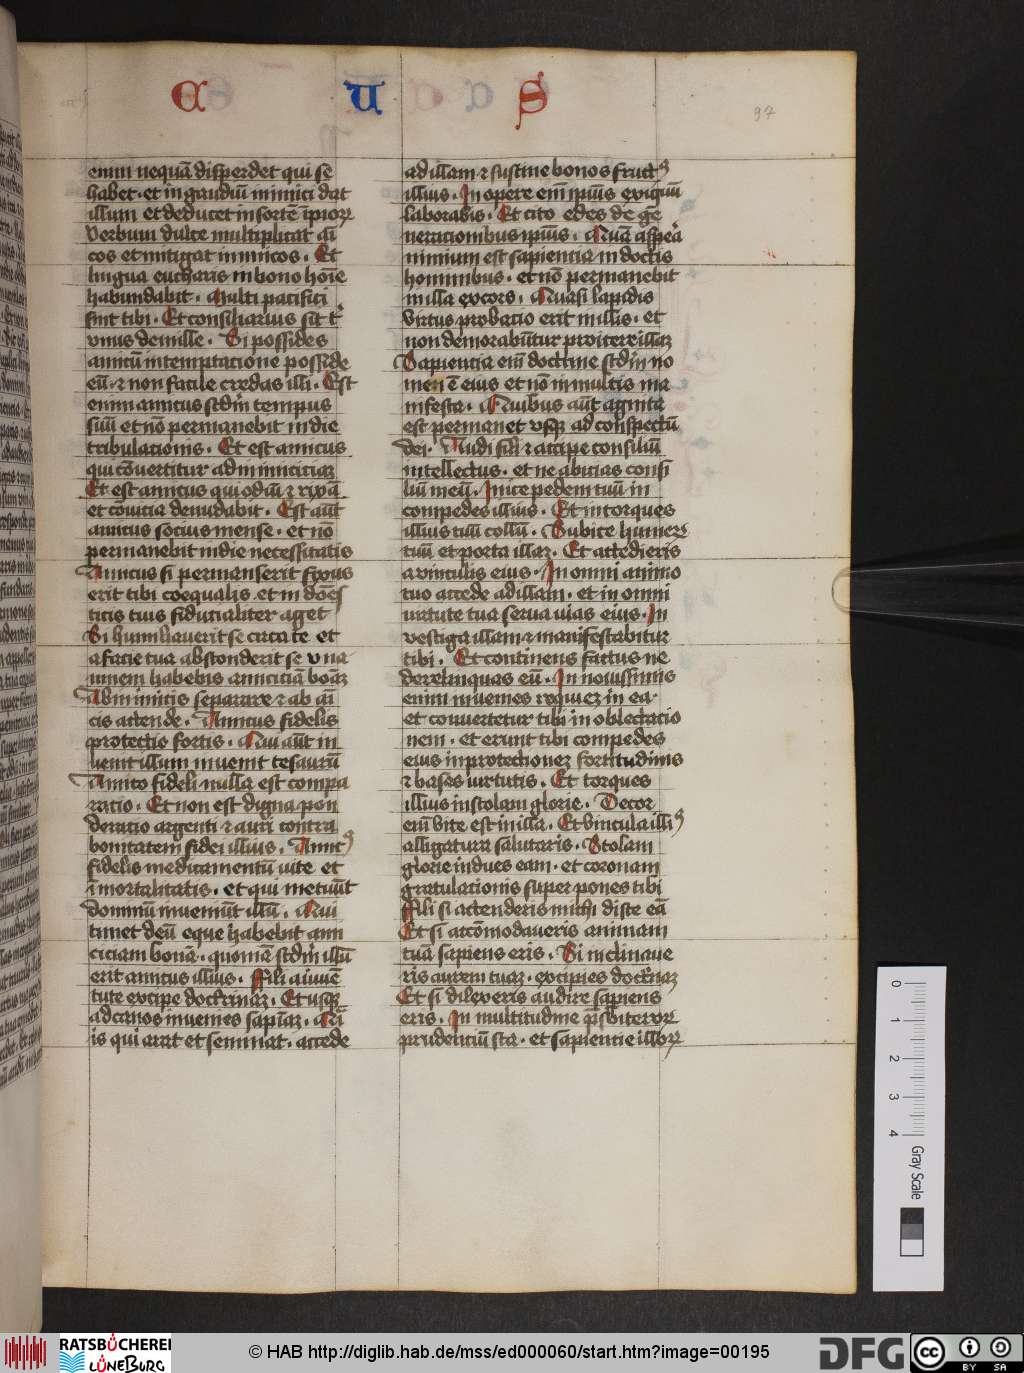 C U S
97
enim nequā disperdet qui se
habet · et in gaudiū inimici dat
illum et deducet in sortē īpiorꝝ
Verbum dulce multiplicat ai
cos et mitigat inimicos · Et
lingua eucharis in bono hoīe
habundabit · Multi pacifici
sint tibi · Et consiliarius sit t'
vnus de mille · Si possides
amicū in temptacione posside
eū · ⁊ non facile credas illi · Est
enim amicus scdm̄ tempus
suū et nō permanebit in die
tribulacionis · Et est amicus
qui cōuertitur ad inimiciciaꝫ
Et est amicus qui odiū ⁊ rixā
et cōuicia denudabit · Est aūt
amicus socius mense · et nō
permanebit in die necessitatis
Amicus si permanserit fixus
erit tibi coequalis · et in domes
ticis tuis fiducialiter aget
Si humiliauerit se c̄tra te et
a facie tua absconderit se vna
nimem habebis amiciciā bonā
Ab inimicis separare ⁊ ab ai
cis attende · Amicus fidelis
protectio fortis · Qui aūt in
uenit illum inuenit tesaurū
Amico fideli nulla est compa
ratio · Et non est digna pon
deratio argenti ⁊ auri contra
bonitatem fidei illius · Amicꝰ
fidelis medicamentū uite et
īmortalitatis · et qui metuūt
dominū inueniūt illū · Qui
timet deū eque habebit ami
ciciam bonā · quoniā scdm̄ illū
erit amicus illius · Fili a iuuē
tute excipe doctrinaꝫ · Et usqꝫ
ad canos inuenies sapiaꝫ · Q̄i
is qui arat et seminat · accede
ad illam ⁊ sustine bonos fructꝰ
illius · In opere em̄ ipsius exiguū
laborabis · Et cito edes de ge
neracionibus ipsius · Quā aspera
nimium est sapiencia indoctis
hominibus · et nō permanebit
in illa excors · Quasi lapidis
virtus probatio erit in illis · et
non demorabūtur proicere illaꝫ
Sapiencia em̄ doctrine scdm̄ no
men ē eius et nō in multis ma
nifesta · Quibus aūt agnita
est permanet vsqꝫ ad conspectū
dei · Audi fili ⁊ accipe consiliū
intellectus · et ne abicias consi
liū meū · Inice pedem tuū in
compedes illius · Et in torques
illius tuū collū · Subice humerū
tuū et porta illaꝫ · Et accedieris
a vinculis eius · In omni animo
tuo accede ad illam · et in omni
uirtute tua serua uias eius · In
vestiga illam ⁊ manifestabitur
tibi · Et continens factus ne
derelinquas eū · In nouissimis
enim inuenies requieꝫ in ea ·
et conuertetur tibi in oblectatio
nem · et erunt tibi compedes
eius in protectioneꝫ fortitudinis
⁊ bases uirtutis · Et torques
illius in stolam glorie · Decor
em̄ vite est in illa · Et vincula illiꝰ
alligatura salutaris · Stolam
glorie indues eam · et coronam
gratulationis super pones tibi
Fili si attenderis michi disce eā
Et si accōmodaueris animam
tuā sapiens eris · Si inclinaue
ris aurem tuaꝫ · excipies doctrinaꝫ
Et si dilexeris audire sapiens
eris · In multitudine p̄sbiterorꝝ
prudenciū sta · et sapiencie illorꝝ
0 1 2 3 4
Gray Scale
RATSBÜCHEREI
LÜNEBURG
© HAB http://diglib.hab.de/mss/ed000060/start.htm?image=00195
DFG
cc BY SA